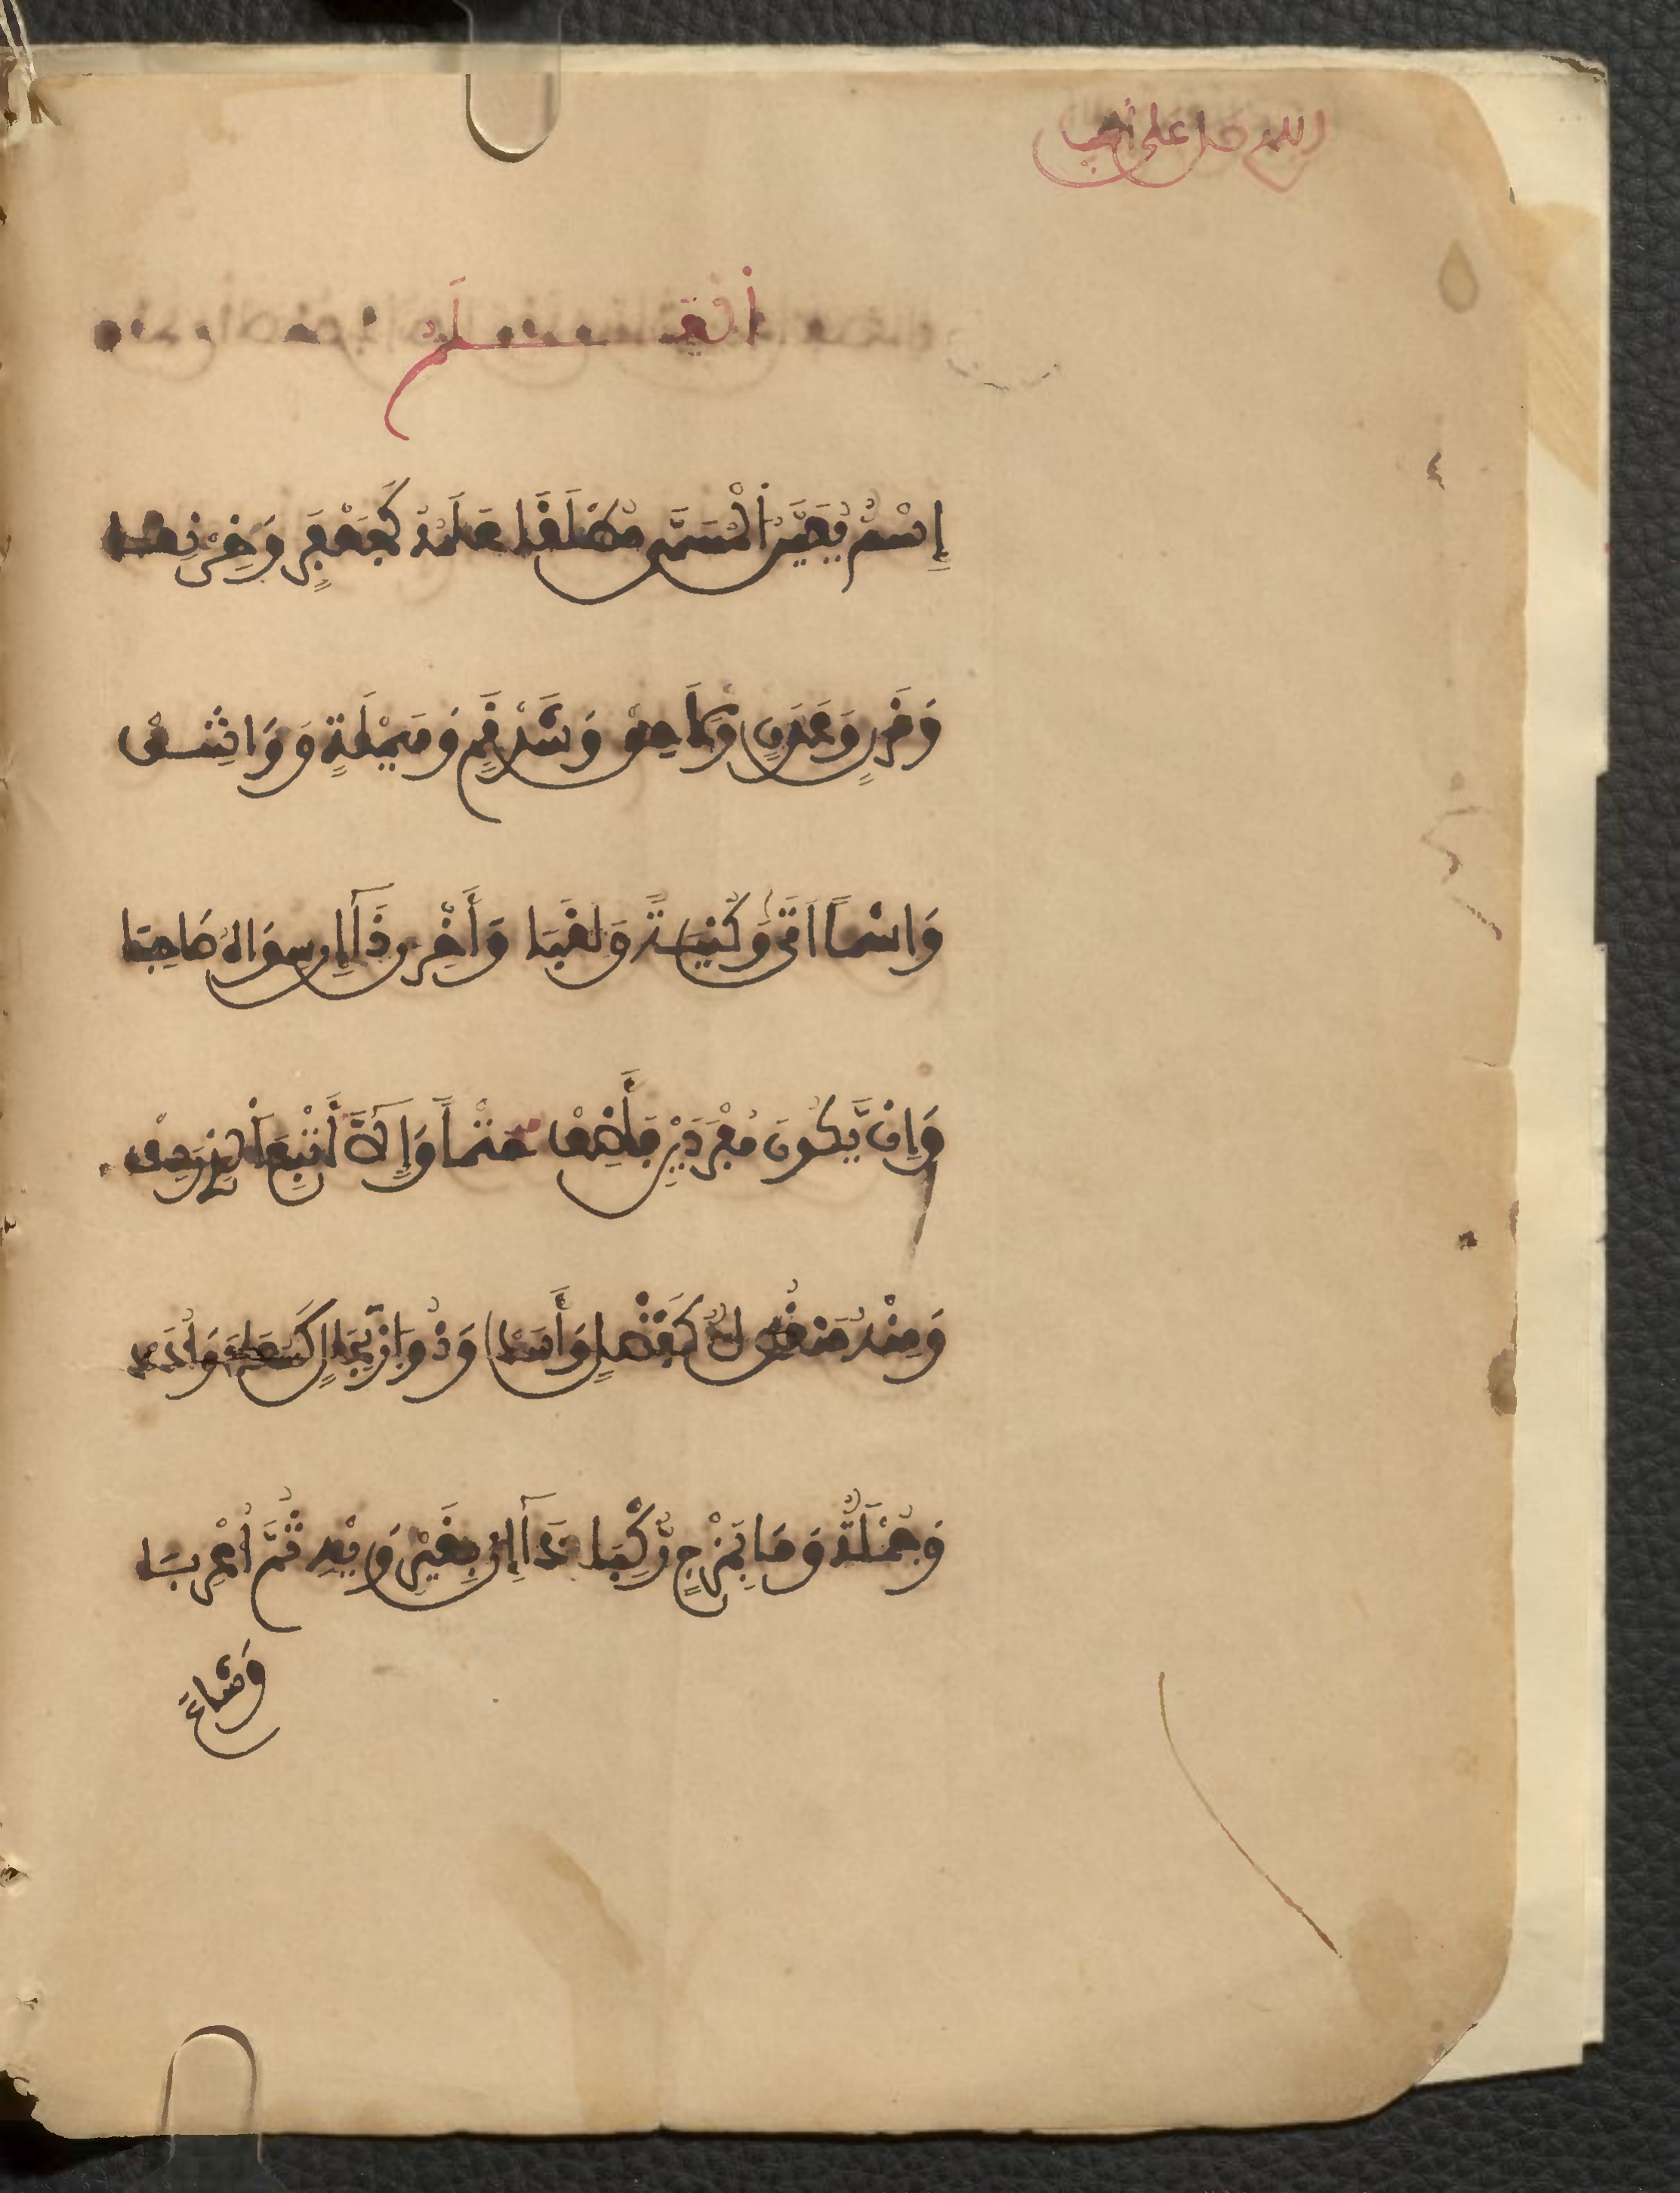 العلم
إِسْمٌ يُعَيِّنُ الْمُسَمَّى مُطْلَقَا عَلَمُهُ كَجَعْفَرٍ وَخِرْنِقَا
وَقَرَنٍ وَعَدَنٍ وَلَاحِقٍ وَشَذْقَمٍ وَهَيْلَةٍ وَوَاشِقٍ
وَاسْماً اَتَى وَكُنْيَةً وَلَقَبَا وَأَخِّرَنْ ذَا إِنْ سِوَاهُ صَاحِبَا
وَإِنْ يَّكُونَا مُفْرَدَيْنِ فَأَضِفْ حَتْماً وَإِلَّا أَتْبِعِ الَّذِي رَدِفْ
وَمِنْهُ مَنْقُولٌ كَفَضْلٍ وَأَسَدْ وَذُو ارْتِجَالٍ كَسُعَادَ وَأُدَدْ
وَجُمْلَةٌ وَمَا بِمَزْجٍ رُّكِّبَا ذَا إِنْ بِغَيْرِ وَيْهِ تَمَّ أُعْرِبَا
وَشَاعَ